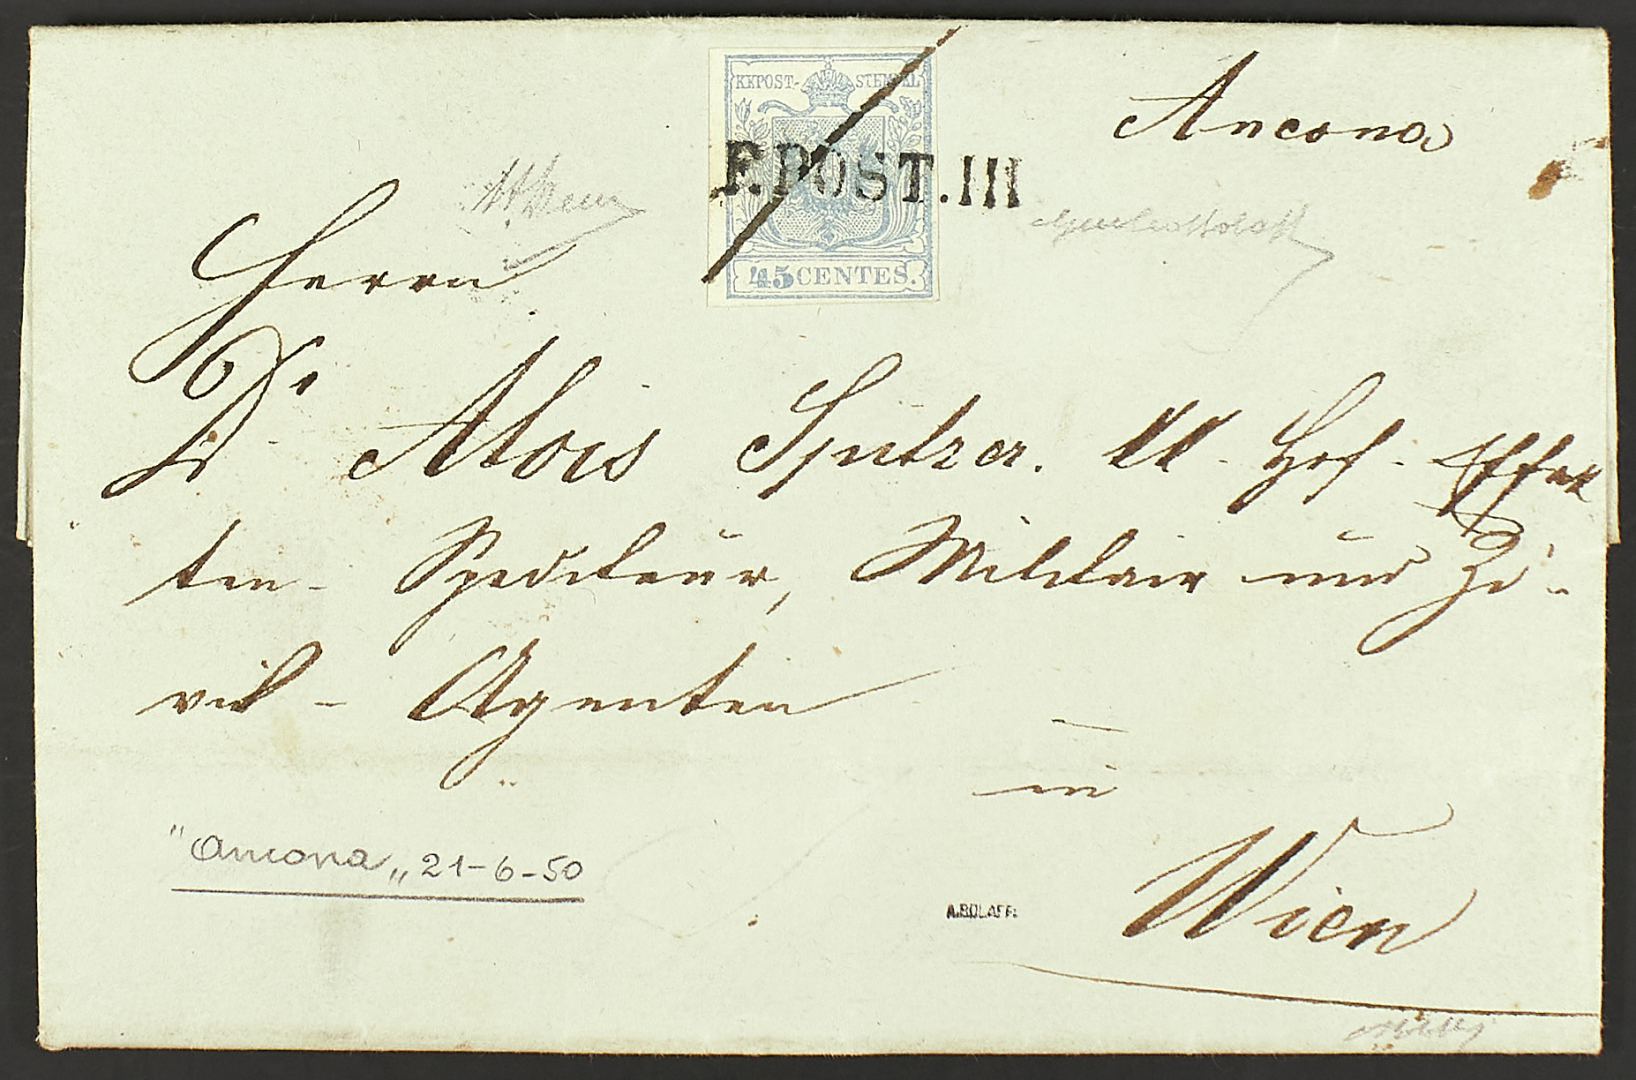 KKPOST-STEMPEL
Ancona
F.POST.III
45 CENTES.
Herrn
Dr Alois Spitzer. kk. Hof-Effek
ten-Spediteur, Militair und Zi-
vil-Agenten
in
Wien
"Ancona" 21-6-50
A.BOLAFFI